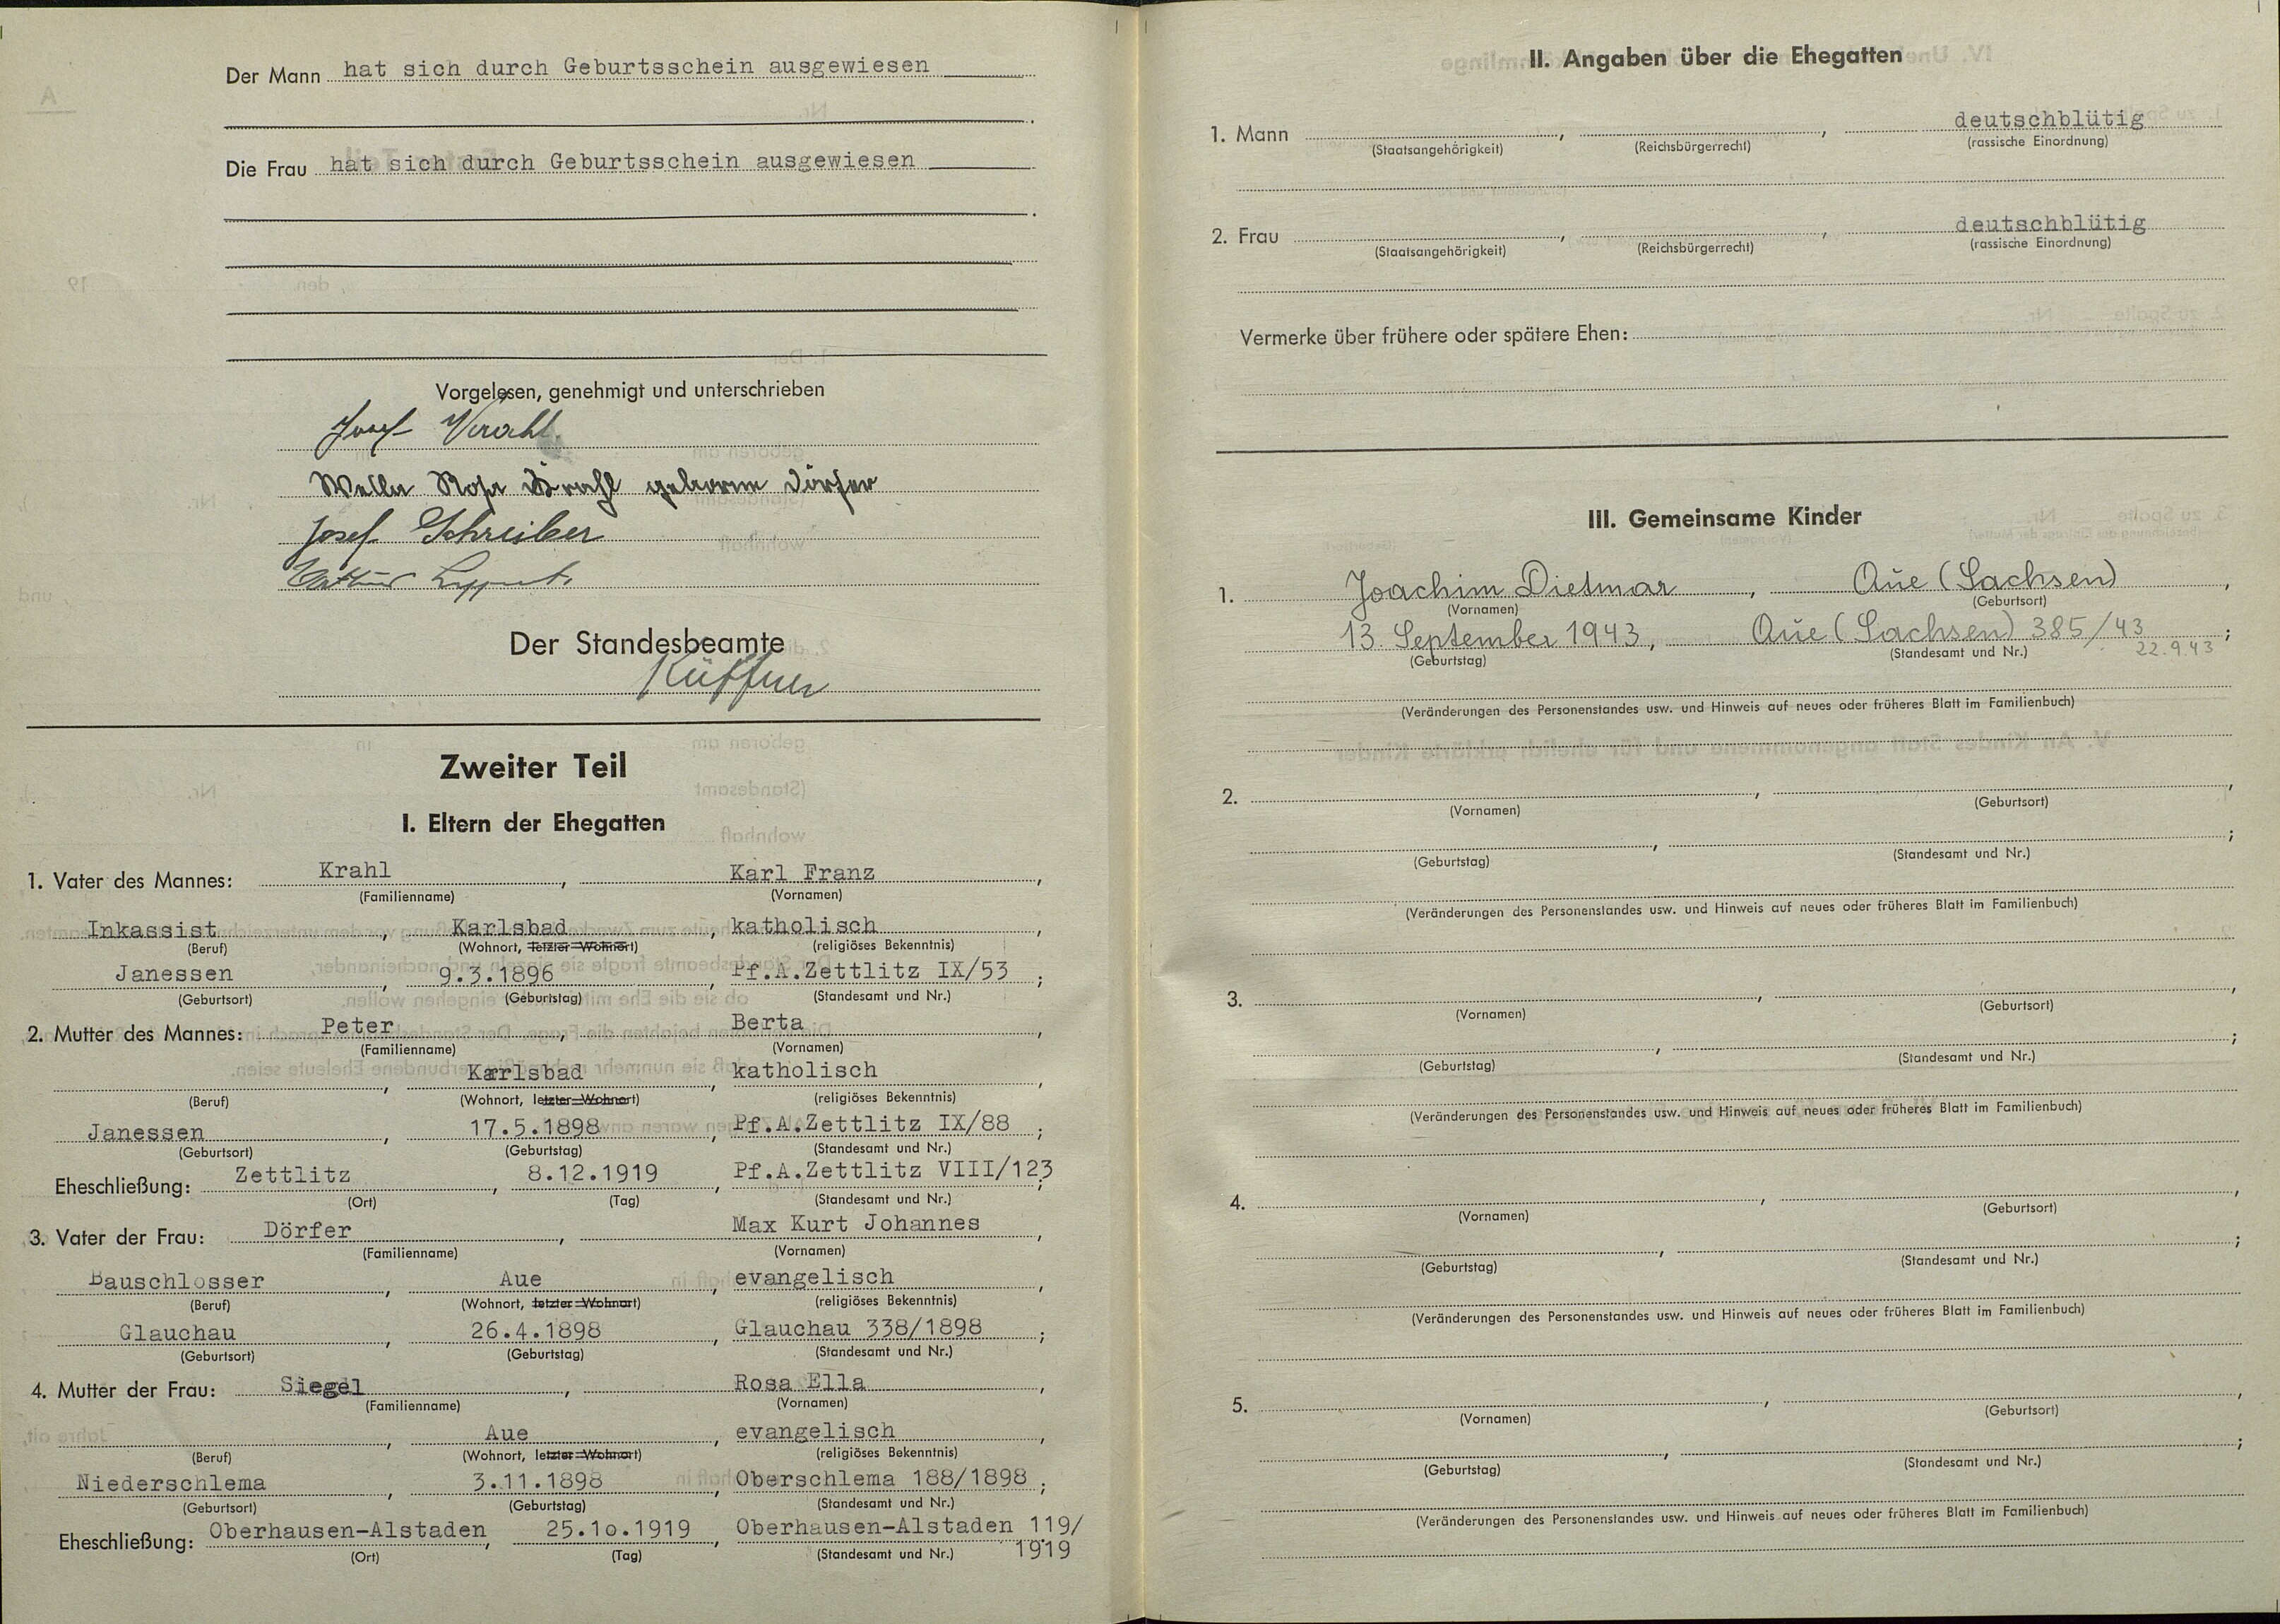 Der Mann hat sich durch Geburtsschein ausgewiesen
.
Die Frau hat sich durch Geburtsschein ausgewiesen
.
Vorgelesen, genehmigt und unterschrieben
Josef Krahl.
Rosa Krahl geborene Dörfer
Josef Schreiber
Der Standesbeamte
Küffner
Zweiter Teil
I. Eltern der Ehegatten
1. Vater des Mannes: Krahl, Karl Franz,
(Familienname) (Vornamen)
Inkassist, Karlsbad, katholisch,
(Beruf) (Wohnort, letzter Wohnort) (religiöses Bekenntnis)
Janessen, 9.3.1896, Pf.A.Zettlitz IX/53;
(Geburtsort) (Geburtstag) (Standesamt und Nr.)
2. Mutter des Mannes: Peter, Berta,
(Familienname) (Vornamen)
, Karlsbad, katholisch,
(Beruf) (Wohnort, letzter Wohnort) (religiöses Bekenntnis)
Janessen, 17.5.1898, Pf.A.Zettlitz IX/88;
(Geburtsort) (Geburtstag) (Standesamt und Nr.)
Eheschließung: Zettlitz, 8.12.1919, Pf.A.Zettlitz VIII/123;
(Ort) (Tag) (Standesamt und Nr.)
3. Vater der Frau: Dörfer, Max Kurt Johannes,
(Familienname) (Vornamen)
Bauschlosser, Aue, evangelisch,
(Beruf) (Wohnort, letzter Wohnort) (religiöses Bekenntnis)
Glauchau, 26.4.1898, Glauchau 338/1898;
(Geburtsort) (Geburtstag) (Standesamt und Nr.)
4. Mutter der Frau: Siegel, Rosa Ella,
(Familienname) (Vornamen)
, Aue, evangelisch,
(Beruf) (Wohnort, letzter Wohnort) (religiöses Bekenntnis)
Niederschlema, 3.11.1898, Oberschlema 188/1898;
(Geburtsort) (Geburtstag) (Standesamt und Nr.)
Eheschließung: Oberhausen-Alstaden, 25.1o.1919, Oberhausen-Alstaden 119/
(Ort) (Tag) (Standesamt und Nr.) 1919
II. Angaben über die Ehegatten
1. Mann , , deutschblütig
(Staatsangehörigkeit) (Reichsbürgerrecht) (rassische Einordnung)
2. Frau , , deutschblütig
(Staatsangehörigkeit) (Reichsbürgerrecht) (rassische Einordnung)
Vermerke über frühere oder spätere Ehen:
III. Gemeinsame Kinder
1. Joachim Dietmar, Aue (Sachsen),
(Vornamen) (Geburtsort)
13. September 1943, Aue (Sachsen) 385/43;
(Geburtstag) (Standesamt und Nr.) 22.9.43
(Veränderungen des Personenstandes usw. und Hinweis auf neues oder früheres Blatt im Familienbuch)
2. , ,
(Vornamen) (Geburtsort)
, ;
(Geburtstag) (Standesamt und Nr.)
(Veränderungen des Personenstandes usw. und Hinweis auf neues oder früheres Blatt im Familienbuch)
3. , ,
(Vornamen) (Geburtsort)
, ;
(Geburtstag) (Standesamt und Nr.)
(Veränderungen des Personenstandes usw. und Hinweis auf neues oder früheres Blatt im Familienbuch)
4. , ,
(Vornamen) (Geburtsort)
, ;
(Geburtstag) (Standesamt und Nr.)
(Veränderungen des Personenstandes usw. und Hinweis auf neues oder früheres Blatt im Familienbuch)
5. , ,
(Vornamen) (Geburtsort)
, ;
(Geburtstag) (Standesamt und Nr.)
(Veränderungen des Personenstandes usw. und Hinweis auf neues oder früheres Blatt im Familienbuch)